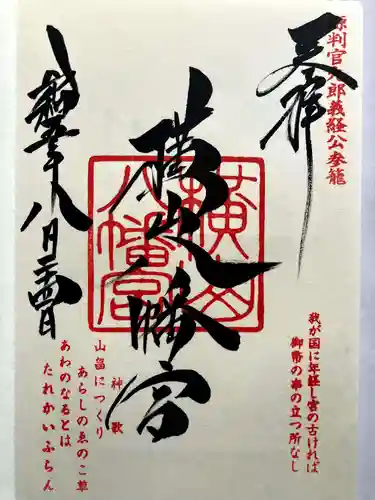 源判官九郎義経公参籠
奉拝
我が国に年経し宮の古ければ
御幣の串の立つ所なし
横山八幡宮
横山
八幡宮
神歌
山畠につくり
あらしのゑのこ草
あわのなるとは
たれかいふらん
八月二四日